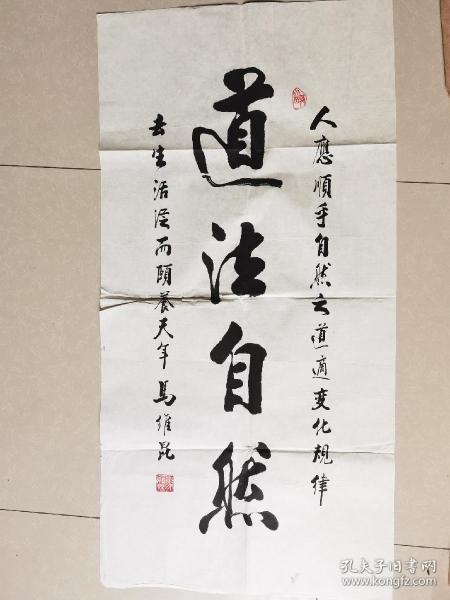 人應順乎自然之道適变化規律
道法自然
去生活從而頤養天年 馬維昆
孔夫子旧书网
www.kongfz.com